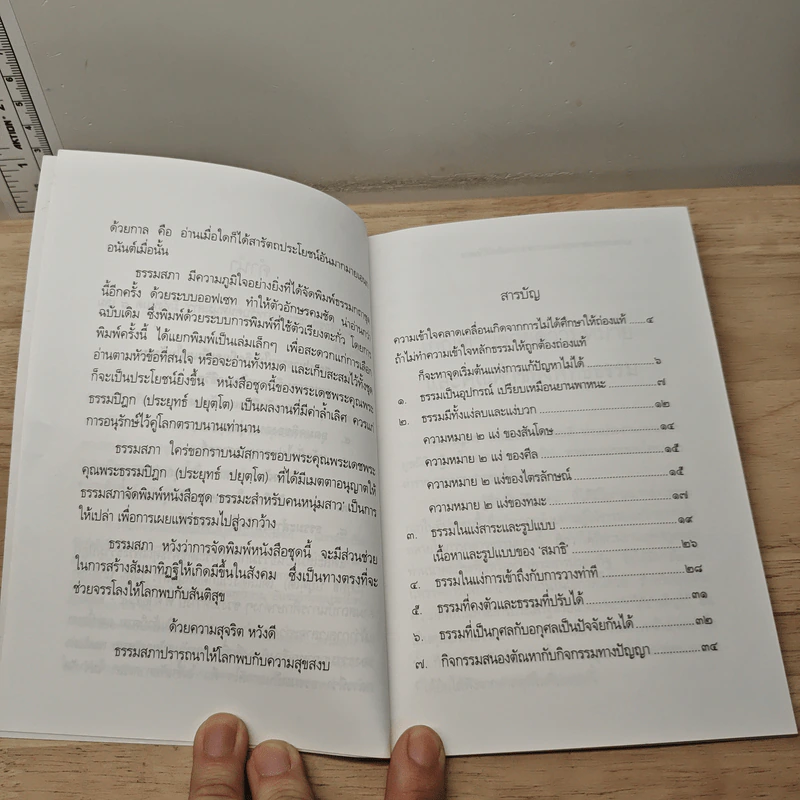 ACTION
1
2
3
4
5
6
ด้วยกาล คือ อ่านเมื่อใดก็ได้สารัตถประโยชน์อันมากมาย
อนันต์เมื่อนั้น
ธรรมสภา มีความภูมิใจอย่างยิ่งที่ได้จัดพิมพ์ธรรมกถาชุด
นี้อีกครั้ง ด้วยระบบออฟเซท ทำให้ตัวอักษรคมชัด น่าอ่านกว่า
ฉบับเดิม ซึ่งพิมพ์ด้วยระบบการพิมพ์ที่ใช้ตัวเรียงตะกั่ว โดยการ
พิมพ์ครั้งนี้ ได้แยกพิมพ์เป็นเล่มเล็กๆ เพื่อสะดวกแก่การเลือก
อ่านตามหัวข้อที่สนใจ หรือจะอ่านทั้งหมด และเก็บสะสมไว้ทั้งชุด
ก็จะเป็นประโยชน์ยิ่งขึ้น หนังสือชุดนี้ของพระเดชพระคุณพระ
ธรรมปิฎก (ประยุทธ์ ปยุตฺโต) เป็นผลงานที่มีค่าล้ำเลิศ ควรแก่
การอนุรักษ์ไว้คู่โลกตราบนานเท่านาน
ธรรมสภา ใคร่ขอกราบนมัสการขอบพระคุณพระเดชพระ
คุณพระธรรมปิฎก (ประยุทธ์ ปยุตฺโต) ที่ได้มีเมตตาอนุญาตให้
ธรรมสภาจัดพิมพ์หนังสือชุด 'ธรรมะสำหรับคนหนุ่มสาว' เป็นการ
ให้เปล่า เพื่อการเผยแพร่ธรรมไปสู่วงกว้าง
ธรรมสภา หวังว่าการจัดพิมพ์หนังสือชุดนี้ จะมีส่วนช่วย
ในการสร้างสัมมาทิฏฐิให้เกิดมีขึ้นในสังคม ซึ่งเป็นทางตรงที่จะ
ช่วยจรรโลงให้โลกพบกับสันติสุข
ด้วยความสุจริต หวังดี
ธรรมสภาปรารถนาให้โลกพบกับความสุขสงบ
สารบัญ
ความเข้าใจคลาดเคลื่อนเกิดจากการไม่ได้ศึกษาให้ถ่องแท้ ......๔
ถ้าไม่ทำความเข้าใจหลักธรรมให้ถูกต้องถ่องแท้
ก็จะหาจุดเริ่มต้นแห่งการแก้ปัญหาไม่ได้ ..................๖
๑. ธรรมเป็นอุปกรณ์ เปรียบเหมือนยานพาหนะ .............๗
๒. ธรรมมีทั้งแง่ลบและแง่บวก ................................๑๒
ความหมาย ๒ แง่ ของสันโดษ ..............................๑๔
ความหมาย ๒ แง่ ของศีล ...................................๑๕
ความหมาย ๒ แง่ ของไตรลักษณ์ ..........................๑๕
ความหมาย ๒ แง่ของทมะ ...................................๑๗
๓. ธรรมในแง่สาระและรูปแบบ ...............................๑๙
เนื้อหาและรูปแบบของ 'สมาธิ' ..............................๒๖
๔. ธรรมในแง่การเข้าถึงกับการวางท่าที ......................๒๘
๕. ธรรมที่คงตัวและธรรมที่ปรับได้ ..........................๓๑
๖. ธรรมที่เป็นกุศลกับอกุศลเป็นปัจจัยกันได้ ...............๓๒
๗. กิจกรรมสนองตัณหากับกิจกรรมทางปัญญา ............๓๔